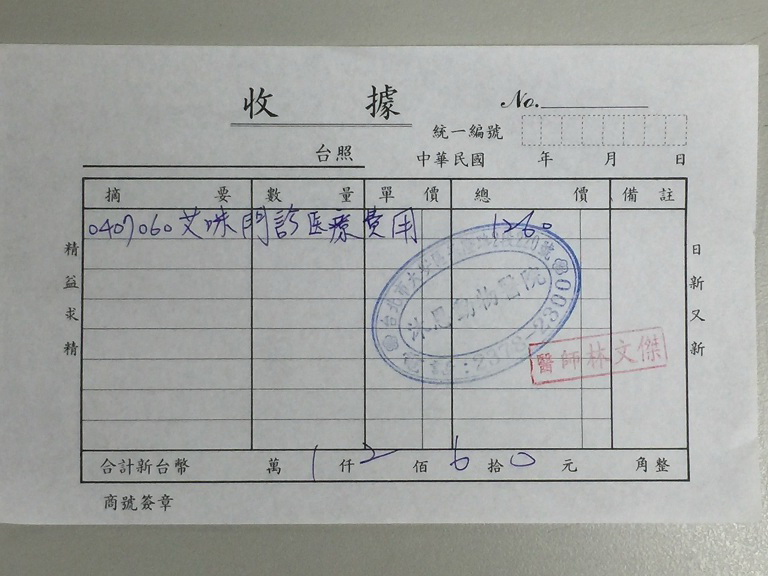 收據
No.
統一編號
台照
中華民國 年 月 日
摘要 數量 單價 總價 備註
0407060艾珠門診医療費用 1260
沐恩動物醫院
醫師林文傑
精益求精
日新又新
合計新台幣 萬 1 仟 2 佰 6 拾 0 元 角整
商號簽章